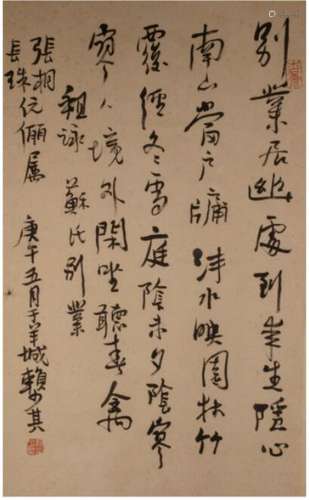 別業居幽處到來生隱心
南山當户牖沣水映園林竹
覆經冬雪庭陰未夕陰寥
寥人境外閒坐聽春禽
祖詠蘇氏別業
張桐
長珠伉儷属 庚午五月于羊城賴少其